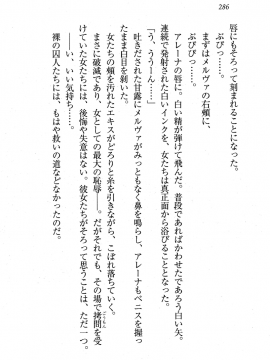 286
唇にもそろって刻まれることになった。
ぶぴぴっ……。
まずはメルヴァの右頬に、
ぶぴぴっ……。
アレーナの唇に。白い精が弾けて飛んだ。普段であればかわせたであろう白い矢。
連続で発射された白いインクを、女たちは真正面から浴びることとなった。
「う、ううーん……」
吐きだされた甘露にメルヴァがみっともなく鼻を鳴らし、アレーナもペニスを握っ
たまま白目を剥いた。
女たちの頬を汚れたエキスがどろりと糸を引きながら、こぼれ落ちていく。
まさに破滅であり、女としての最大の恥辱――。だがそれでも、その場で拷問を受
けていた女たちには、後悔や失意はない。彼女たちがそろって思うことは、ただ一つ。
――い、いい気持ち……。
裸の囚人たちには、もはや救いの道などなかったのだ。